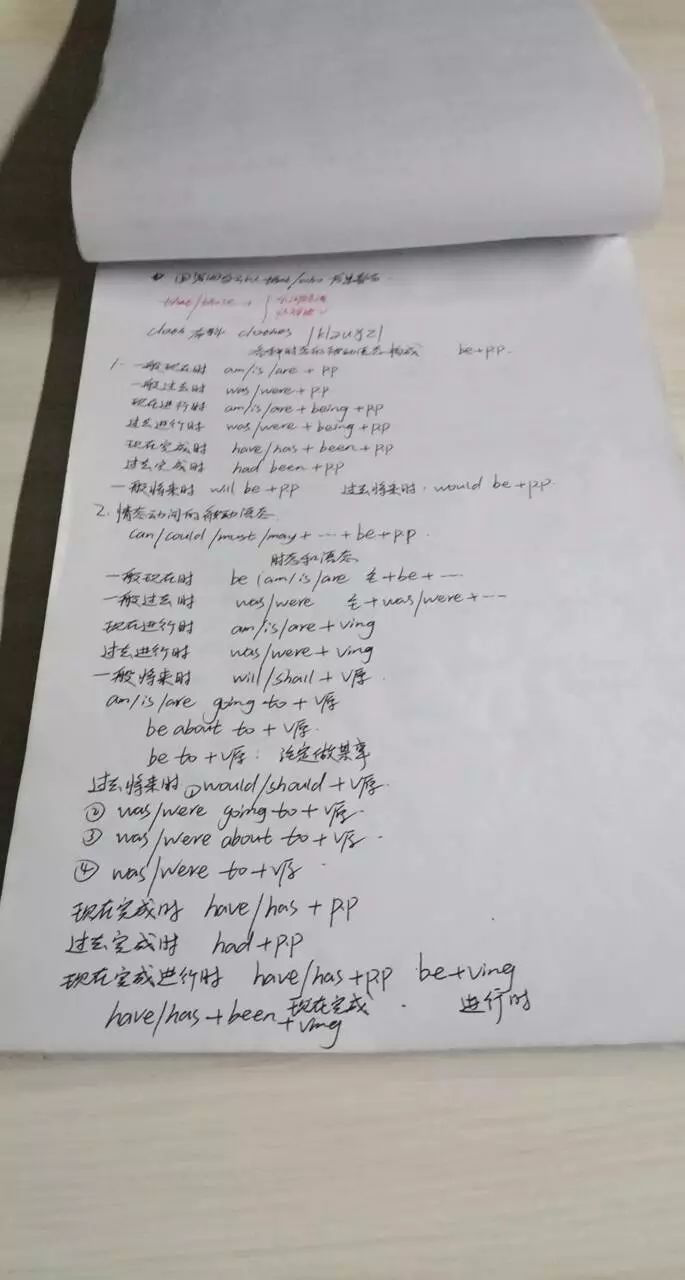 that/those
cloth 布料 clothes |kləuðz|
各种时态的被动语态构成 be+pp.
1. 一般现在时 am/is/are + pp
一般过去时 was/were+pp
现在进行时 am/is/are+being+pp
过去进行时 was/were+being+pp
现在完成时 have/has+been+pp
过去完成时 had been+pp
一般将来时 will be+pp 过去将来时. would be+pp.
2. 情态动词的被动语态
can/could/must/may+…+be+pp.
时态和语态
一般现在时 be (am/is/are 主+be+…
一般过去时 was/were 主+was/were+…
现在进行时 am/is/are+ving
过去进行时 was/were+ving
一般将来时 will/shall+v原.
am/is/are going to+v原.
be about to+v原.
be to+v原: 注定做某事
过去将来时 ①would/should+v原.
② was/were going to+v原.
③ was/were about to+v原.
④ was/were to+v原.
现在完成时 have/has+pp
过去完成时 had+pp
现在完成进行时 have/has+pp be+ving
现在完成 进行时
have/has+been+ving